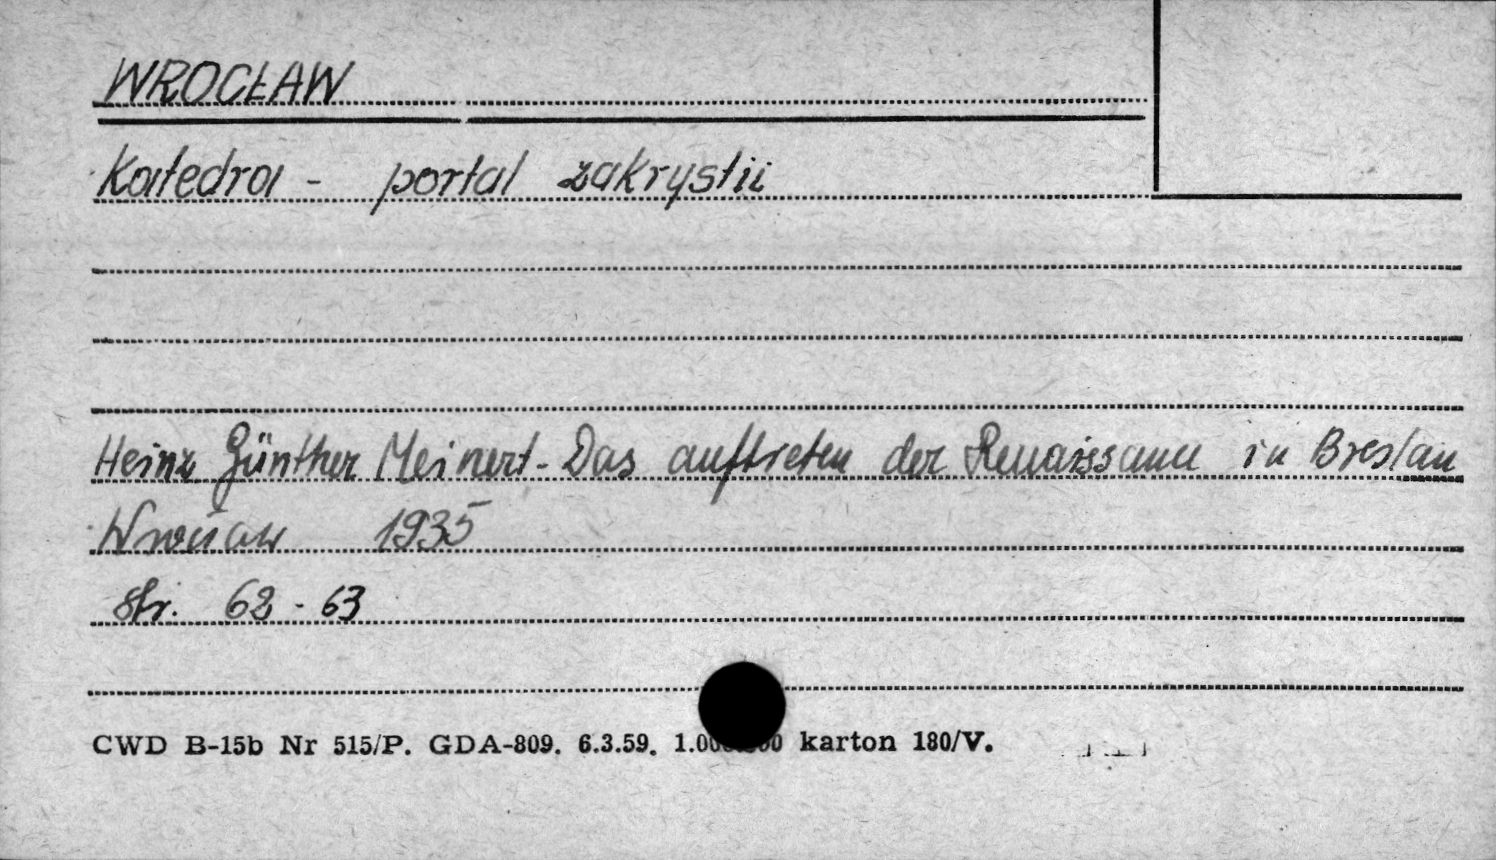 WROCŁAW
Katedra - portal zakrystii
Heinz Günther Meinert - Das auftreten der Renaissance in Breslau
Wrocław 1935
str. 62 - 63
CWD B-15b Nr 515/P. GDA-809. 6.3.59. karton 180/V.